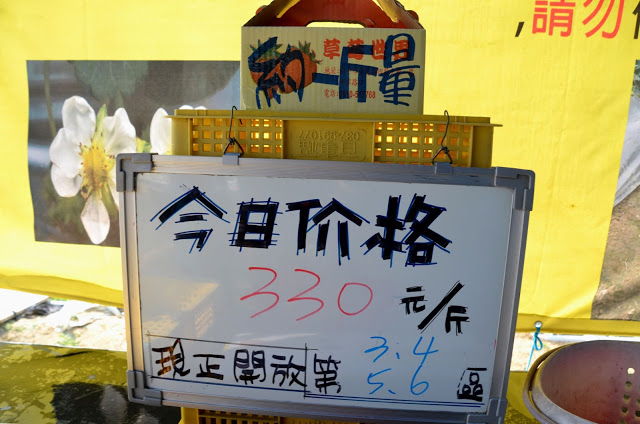 ,請勿
草莓世界
約一斤量
037-991077
今日价格
330 元/斤
現正開放第 3.4 5.6 區